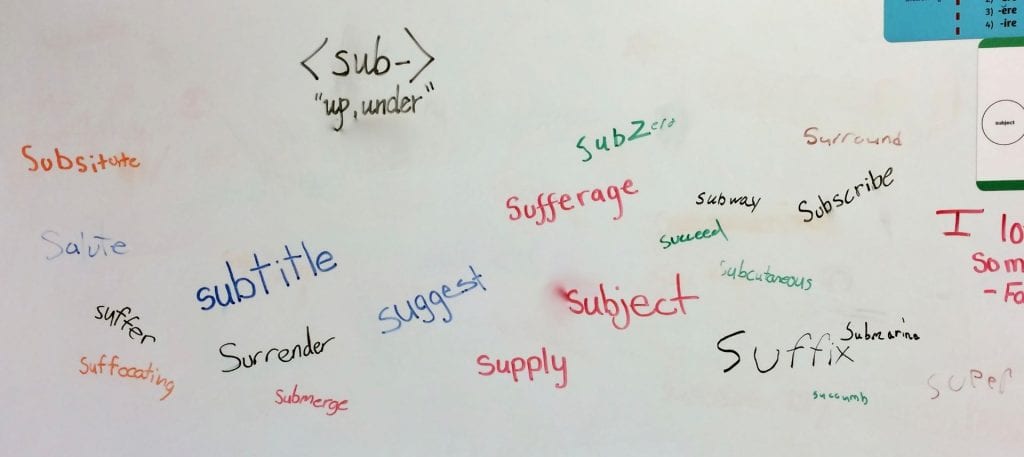 3) -ére
4) -ire
<sub->
"up, under"
subject
SubZero
Surround
Subsitute
Sufferage
subway
Subscribe
Salute
succeed
I lo
subtitle
Subcutaneous
Som
suggest
subject
- Fo
suffer
Surrender
Submarine
Suffix
Suffocating
supply
Submerge
succumb